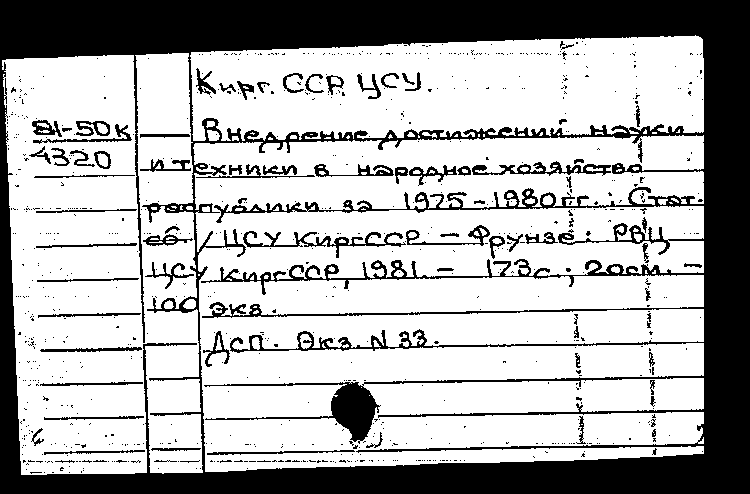 Кирг. ССР. ЦСУ.
81-50к
4320
Внедрение достижений науки
и техники в народное хозяйство
республики за 1975-1980гг.: Стат.
сб. / ЦСУ КиргССР. - Фрунзе: РВЦ
ЦСУ КиргССР, 1981. - 173с.; 20см. -
100 экз.
Дсп. Экз. N 33.